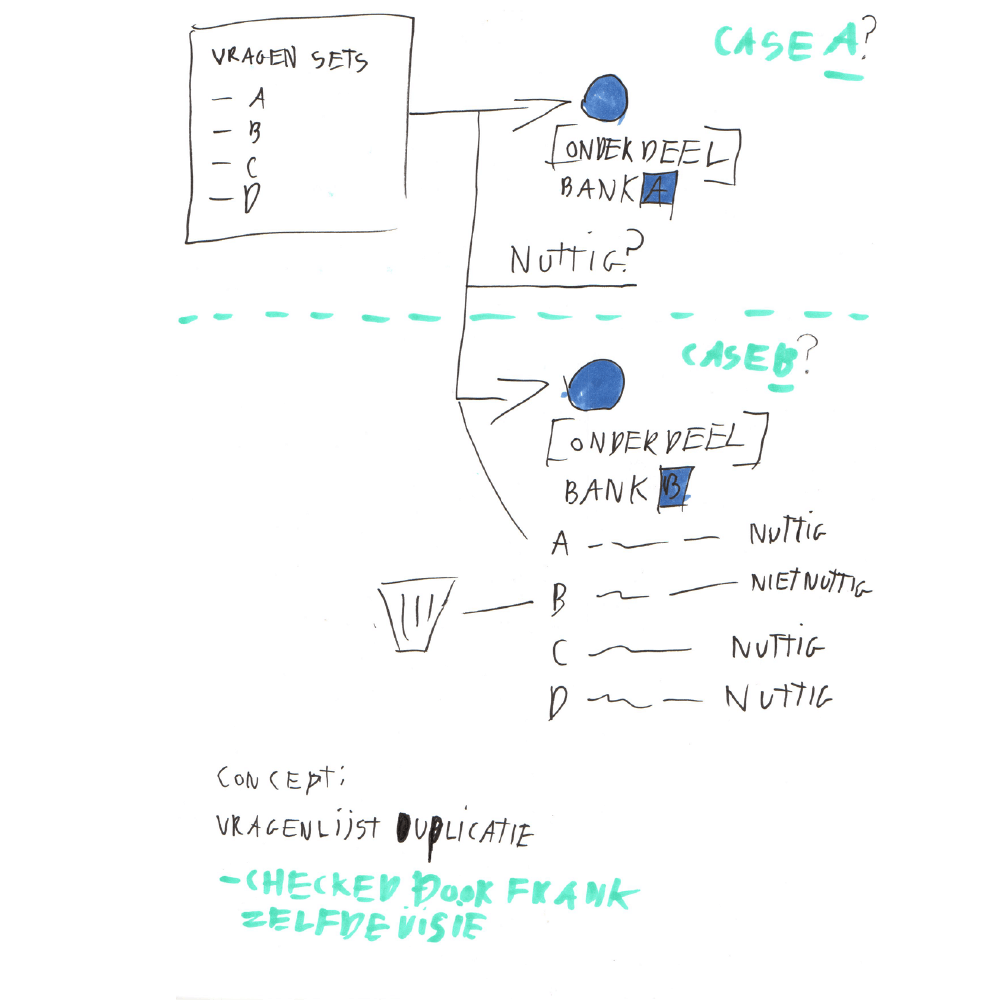 VRAGEN SETS
- A
- B
- C
- D
CASE A?
[ONDERDEEL]
BANK A
NUTTIG?
CASE B?
[ONDERDEEL]
BANK B
A NUTTIG
B NIET NUTTIG
C NUTTIG
D NUTTIG
CONCEPT:
VRAGENLIJST DUPLICATIE
- CHECKED DOOR FRANK
ZELFDE VISIE